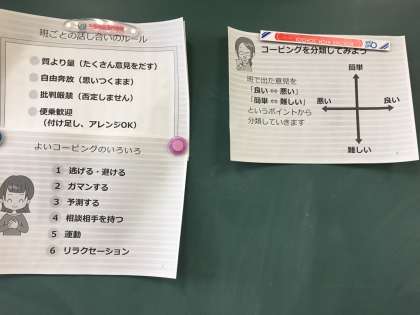 班ごとの話し合いのルール
質より量（たくさん意見をだす）
自由奔放（思いつくまま）
批判厳禁（否定しません）
便乗歓迎
（付け足し、アレンジOK）
よいコーピングのいろいろ
1 逃げる・避ける
2 ガマンする
3 予測する
4 相談相手を持つ
5 運動
6 リラクセーション
コーピングを分類してみよう
班で出た意見を
「良い⇔悪い」
「簡単⇔難しい」
というポイントから
分類していきます
簡単
悪い
良い
難しい